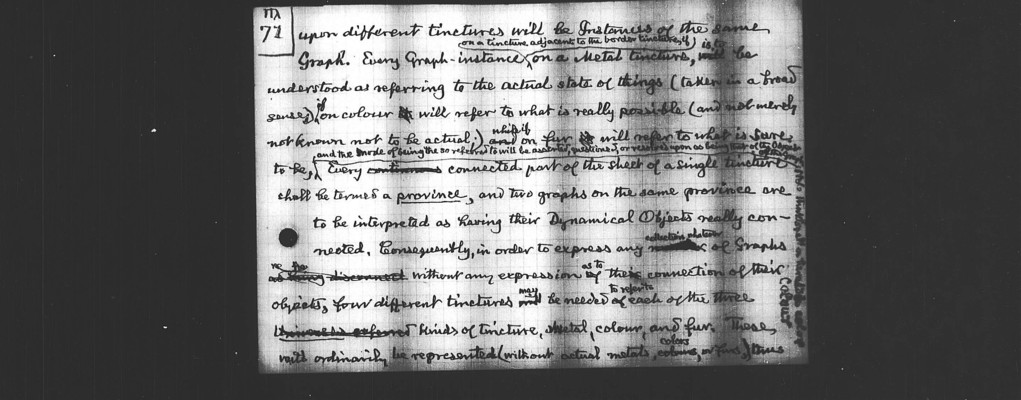 71
upon different tinctures will be Instances of the same
on a tincture adjacent to the border tincture, if
Graph. Every Graph-instance, on a Metal tincture, is to be
understood as referring to the actual state of things (taken in a broad
sense), if on colour will refer to what is really possible (and not merely
not known not to be actual;) while if on fur will refer to what is sure
and the mode of being the so referred to will be asserted, questioned, or resolved upon as being that of the
to be, Every connected part of the sheet of a single tincture
shall be termed a province, and two graphs on the same province are
to be interpreted as having their Dynamical Objects really con-
nected. Consequently, in order to express any collection whatever of Graphs
without any expression as to their connection of their
objects, four different tinctures may be needed to refer to each of the three
kinds of tincture, Metal, colour, and fur. These
will ordinarily be represented (without actual metals, colors, or furs,) thus
colour